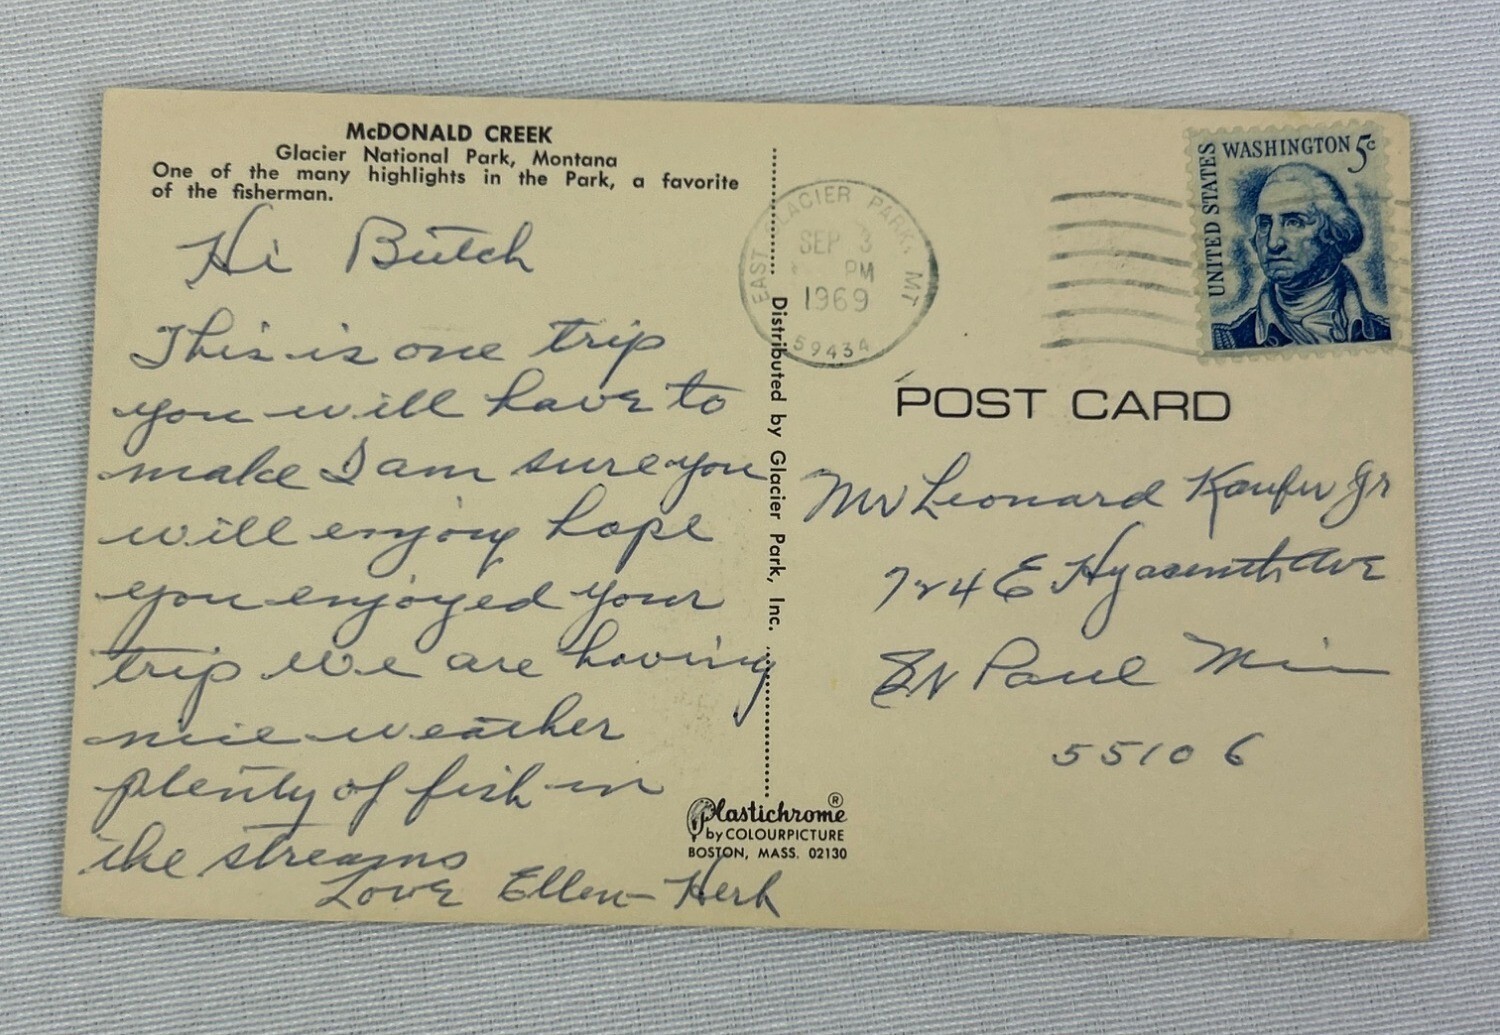 McDONALD CREEK
Glacier National Park, Montana
One of the many highlights in the Park, a favorite
of the fisherman.
Hi Butch
This is one trip
you will have to
make I am sure you
will enjoy hope
you enjoyed your
trip we are having
nice weather
plenty of fish in
the streams
Love Ellen - Herb
Distributed by Glacier Park, Inc.
Plastichrome ®
by COLOURPICTURE
BOSTON, MASS. 02130
EAST GLACIER PARK, MT
SEP 3
PM
1969
59434
UNITED STATES
WASHINGTON 5c
POST CARD
Mr Leonard Jr
724 E Hyacinth Ave
Paul Minn
55106